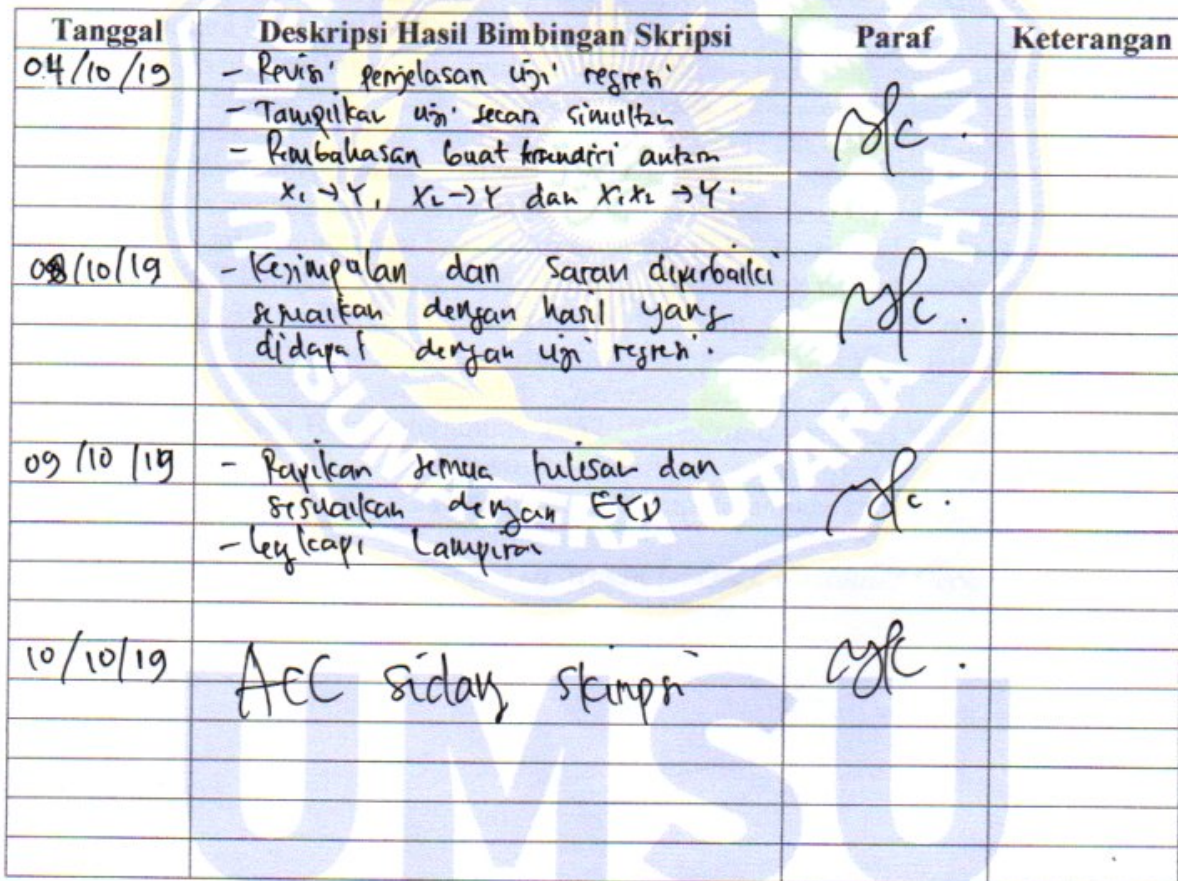 Tanggal Deskripsi Hasil Bimbingan Skripsi Paraf Keterangan
04/10/19 - Revisi penjelasan uji regresi
- Tampilkan uji secara simultan
- Pembahasan buat tersendiri antara
X1 → Y, X2 → Y dan X1X2 → Y.
08/10/19 - Kesimpulan dan Saran diperbaiki
sesuaikan dengan hasil yang
didapat dengan uji regresi.
09/10/19 - Rapikan semua tulisan dan
sesuaikan dengan EYD
- lengkapi Lampiran
10/10/19 ACC sidang skripsi
SUMATERA UTARA
UMSU